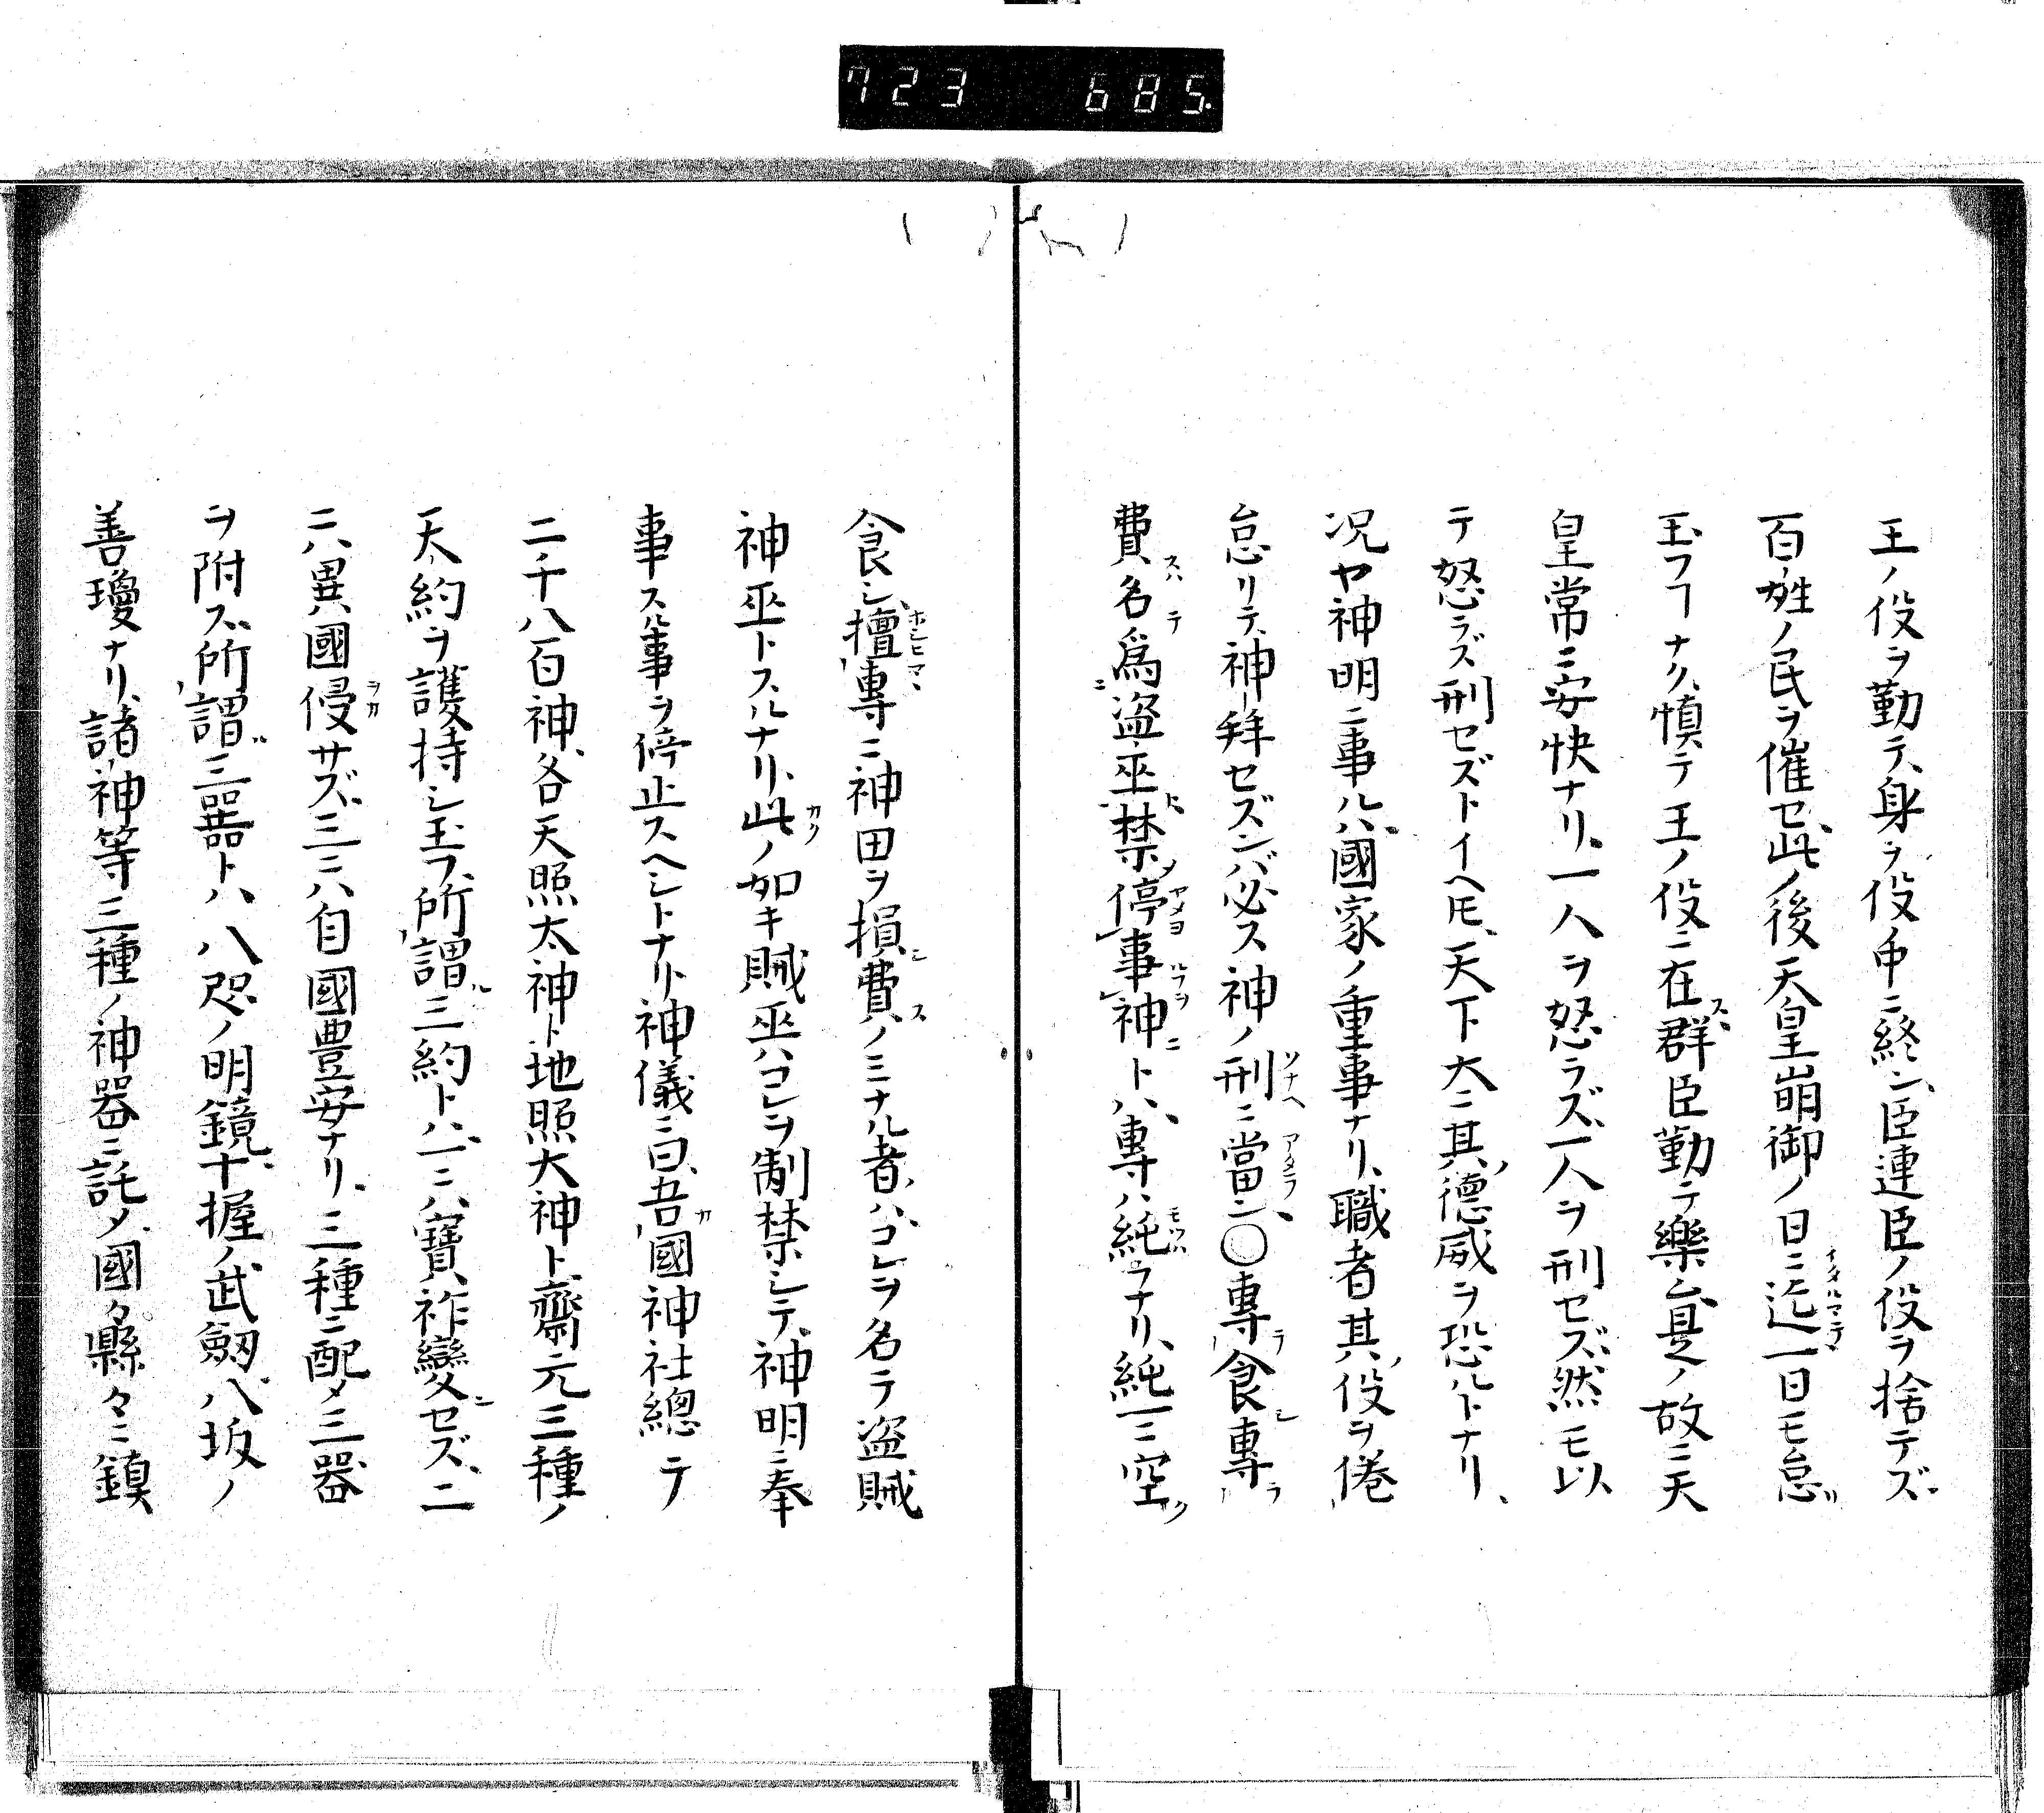 723 685.
王ノ役ヲ勤テ、身ヲ役中ニ終ン、臣連臣ノ役ヲ捨テズ
百姓ノ民ヲ催セ、此ノ後天皇崩御ノ日ニ迄一日モ怠リ
玉フヿナク、慎テ王ノ役ニ在ス、群臣勤テ樂ム、是ノ故ニ天
皇常ニ安快ナリ、一人ヲ怒ラズ、一人ヲ刑セズ、然モ以
テ怒ラズ刑セズトイヘ𪜈、天下大ニ其ノ德威ヲ恐ルトナリ、
况ヤ神明ニ事ルハ、國家ノ重事ナリ、職者其ノ役ヲ倦
怠リテ、神ヲ拜セズンバ必ス神ノ刑ニ當ン、〇專テ食シ專ラ
費ス名テ爲ニ盗巫ト禁メ停ヨ事ルヲ神ニトハ、專ハ純ラナリ、純一ニ空ク
食シ、擅專ニ神田ヲ損シ費スノミナル者ハ、コレヲ名テ盗賊
神巫トスルナリ、此ノ如キ賊巫ハコレヲ制禁シテ、神明ニ奉
事スル事ヲ停止スヘシトナリ、神儀ニ曰、吾カ國神社總テ
二千八百神、各天照太神ト地照大神ト、齋元三種ノ
天約ヲ護持シ玉フ、所謂ル三約トハ、一ニハ寶祚變セズ、二
ニハ異國侵サズ、三ニハ自國豊安ナリ、三種ニ配メ三器
ヲ附ス、所謂ル三器トハ、八咫ノ明鏡、十握ノ武劔、八坂ノ
善瓊ナリ、諸神等三種ノ神器ニ託メ、國々縣々ニ鎮